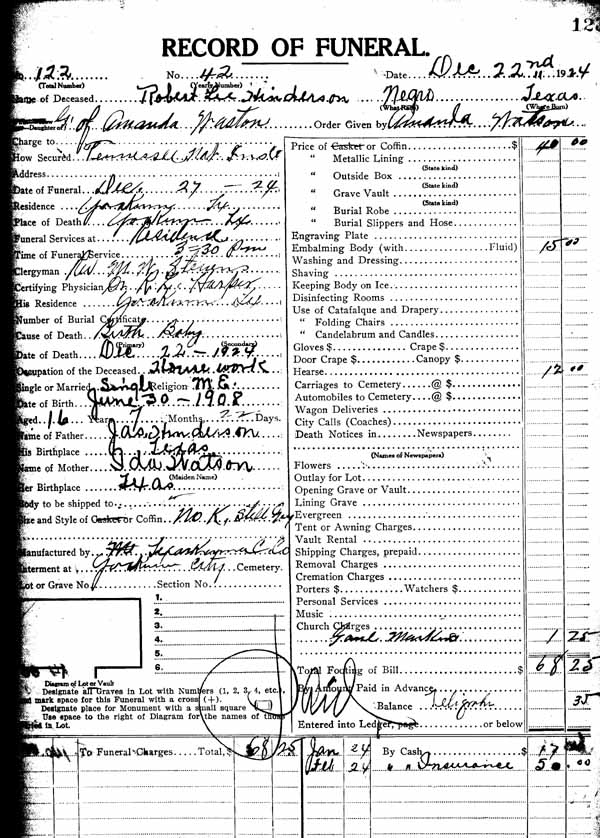 123
RECORD OF FUNERAL.
No. 122 No. 42 Date Dec 22nd 1924
(Total Number) (Yearly Number)
Name of Deceased Robert Lee Hinderson Negro Texas
(What Race) (Where Born)
Daughter of G. of Amanda Waston Order Given by Amanda Watson
Charge to
How Secured Tennessee Nat.
Address
Date of Funeral Dec. 27 - 24
Residence Yoakum Tx
Place of Death Yoakum Tx
Funeral Services at Residence
Time of Funeral Service 3-30 Pm
Clergyman Rev. M. W.
Certifying Physician Dr. Harper
His Residence Yoakum
Number of Burial Certificate
Cause of Death Birth Baby
(Primary) (Secondary)
Date of Death Dec 22 - 1924
Occupation of the Deceased House work
Single or Married Singl Religion M.E.
Date of Birth June 30 - 1908
Aged 16 Years 7 Months 22 Days.
Name of Father Jas. Hinderson
His Birthplace Texas
Name of Mother Ida Watson
(Maiden Name)
Her Birthplace Texas
Body to be shipped to
Size and Style of Casket or Coffin No. K, Still Gay
Manufactured by Texarkana C. Co
Interment at Yoakum City Cemetery.
Lot or Grave No. Section No.
1.
2.
3.
4.
5.
6.
Diagram of Lot or Vault
Designate all Graves in Lot with Numbers (1, 2, 3, 4, etc.,
and mark space for this Funeral with a cross (+).
Designate place for Monument with a small square
Use space to the right of Diagram for the names of those
buried in Lot.
Price of Casket or Coffin $ 40 00
" Metallic Lining
(State kind)
" Outside Box
(State kind)
" Grave Vault
(State kind)
" Burial Robe
(State kind)
" Burial Slippers and Hose
Engraving Plate
Embalming Body (with Fluid) 15 00
Washing and Dressing
Shaving
Keeping Body on Ice
Disinfecting Rooms
Use of Catafalque and Drapery
" Folding Chairs
" Candelabrum and Candles
Gloves $ Crape $
Door Crape $ Canopy $
Hearse 12 00
Carriages to Cemetery @ $
Automobiles to Cemetery @ $
Wagon Deliveries
City Calls (Coaches)
Death Notices in Newspapers
(Names of Newspapers)
Flowers
Outlay for Lot
Opening Grave or Vault
Lining Grave
Evergreen
Tent or Awning Charges
Vault Rental
Shipping Charges, prepaid
Removal Charges
Cremation Charges
Porters $ Watchers $
Personal Services
Music
Church Charges
Markers 1 25
Total Footing of Bill $ 68 25
By Amount Paid in Advance
Paid
Balance 35
Entered into Ledger, page or below
To Funeral Charges Total, $ 68 25 Jan 24 By Cash $ 17
Feb 24 " " Insurance 50.00